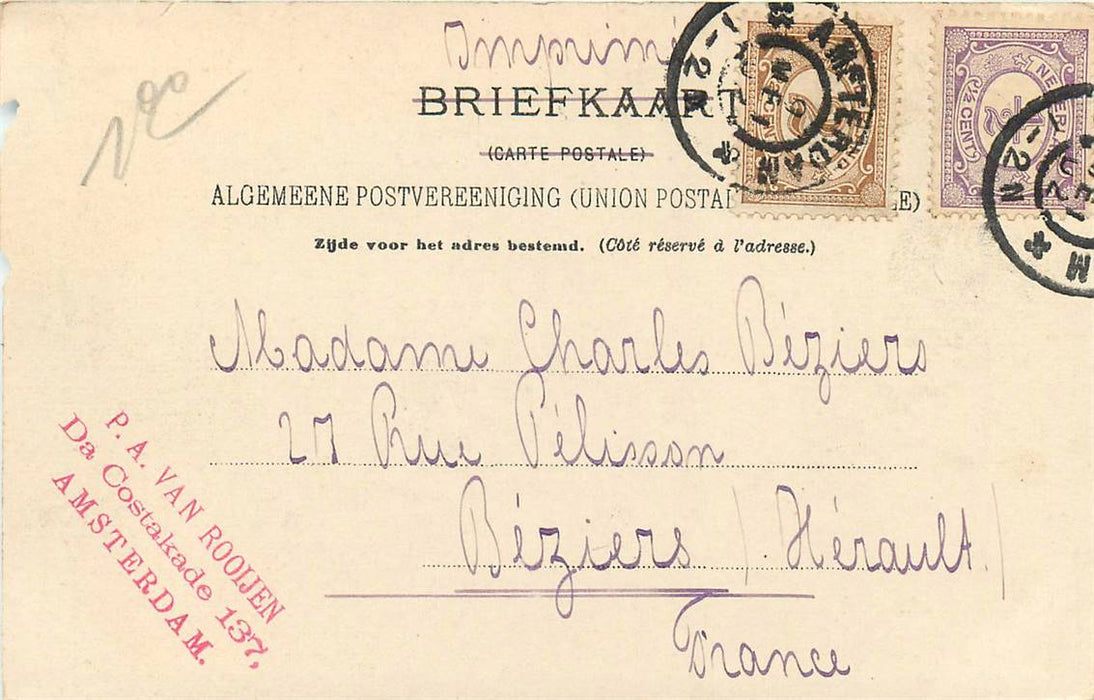 Imprimé
BRIEFKAART
(CARTE POSTALE)
ALGEMEENE POSTVEREENIGING (UNION POSTA
Zijde voor het adres bestemd. (Côté réservé à l'adresse.)
Madame Charles Béziers
27 Rue Pélisson
Béziers (Hérault)
France
P. A. VAN ROOIJEN
Da Costakade 137,
AMSTERDAM.
AMSTERDAM
1-2N
2½ CENT
1-2N